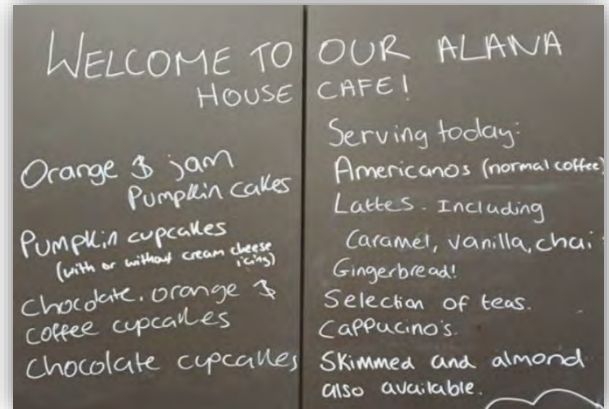 WELCOME TO OUR ALANA
HOUSE CAFE!
Orange & jam
Pumpkin cakes
Pumpkin cupcakes
(with or without cream cheese
icing)
Chocolate, orange &
coffee cupcakes
Chocolate cupcakes
Serving today:
Americanos (normal coffee)
Lattes. Including
Caramel, vanilla, chai
Gingerbread!
Selection of teas.
Cappucino's.
Skimmed and almond
also available.